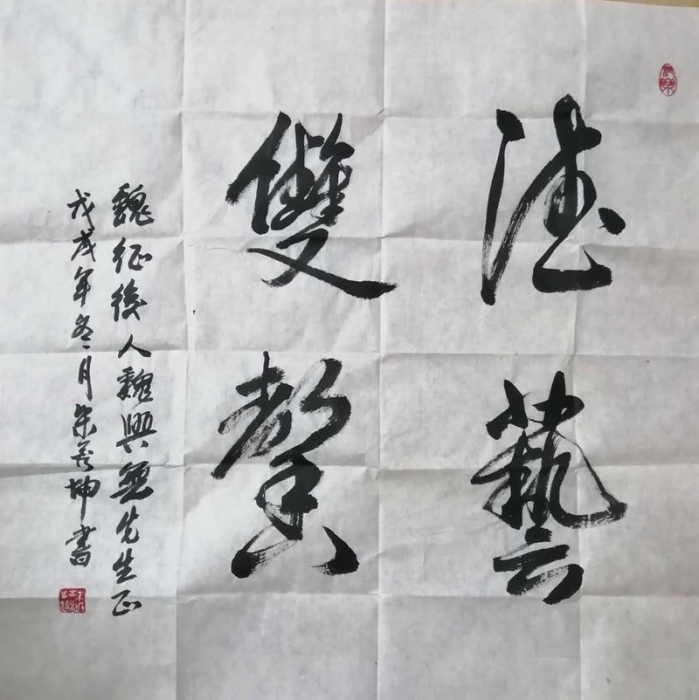 德藝
雙馨
魏征後人魏興無先生正
戊戌年冬月朱善坤書